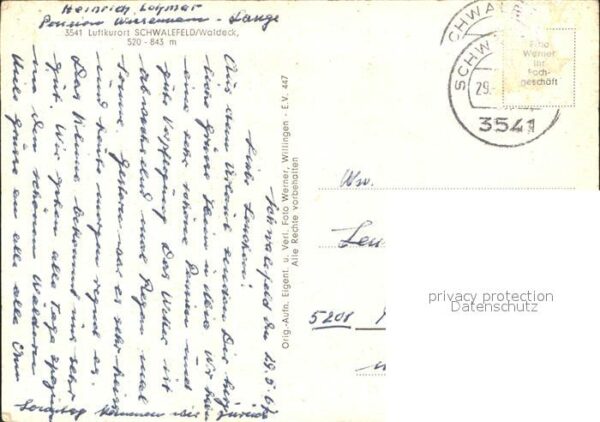 Heinrich
Pension Wissemann - Lange
3541 Luftkurort SCHWALEFELD/Waldeck,
520 - 843 m
Schwalefeld den 29.5.67
Liebe Lenchen!
Aus dem Urlaub senden Dir herz
liche Grüsse Hein u. Wir haben
eine sehr schöne Pension und
gute Verpflegung. Das Wetter ist
abwechselnd mal Regen mal
Sonne. Gestern war es sehr heiß
und heute morgen regnet es.
Das Kleine bekommt uns sehr
gut. Wir gehen alle Tage spazie
in den schönen Wäldern
Viele Grüsse an alle
Sonntag kommen wir zurück
Orig.-Aufn. Eigent. u. Verl. Foto Werner, Willingen - E.V. 447
Alle Rechte vorbehalten
SCHWAL
29.
3541
Foto
Werner
Ihr
Fach-
geschäft
5208
privacy protection
Datenschutz